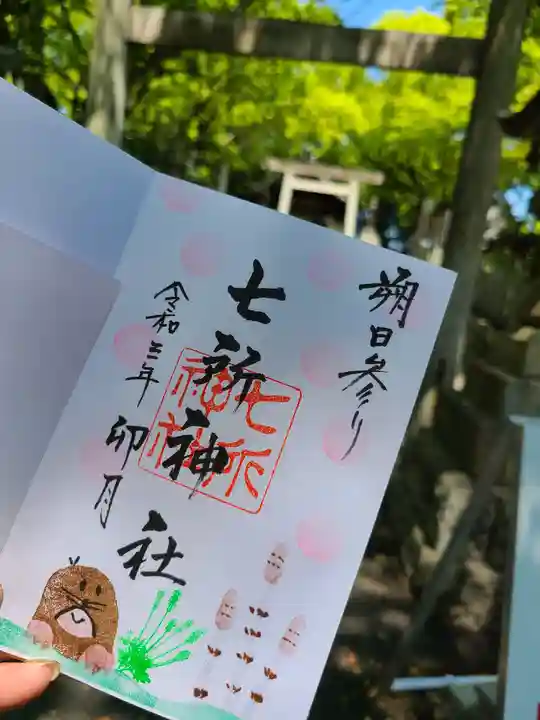 朔日参り
七所神社
令和三年 卯月
七所
神社